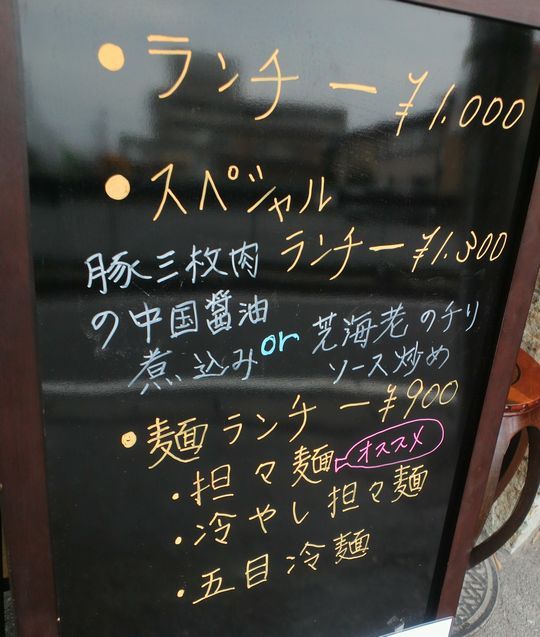 • ランチ ー ¥1.000
• スペシャル
ランチー ¥1.300
豚三枚肉
の中国醤油
煮込み
or
芝海老のチリ
ソース炒め
• 麺ランチ ー¥900
・担々麺 オススメ
・冷やし担々麺
・五目冷麺